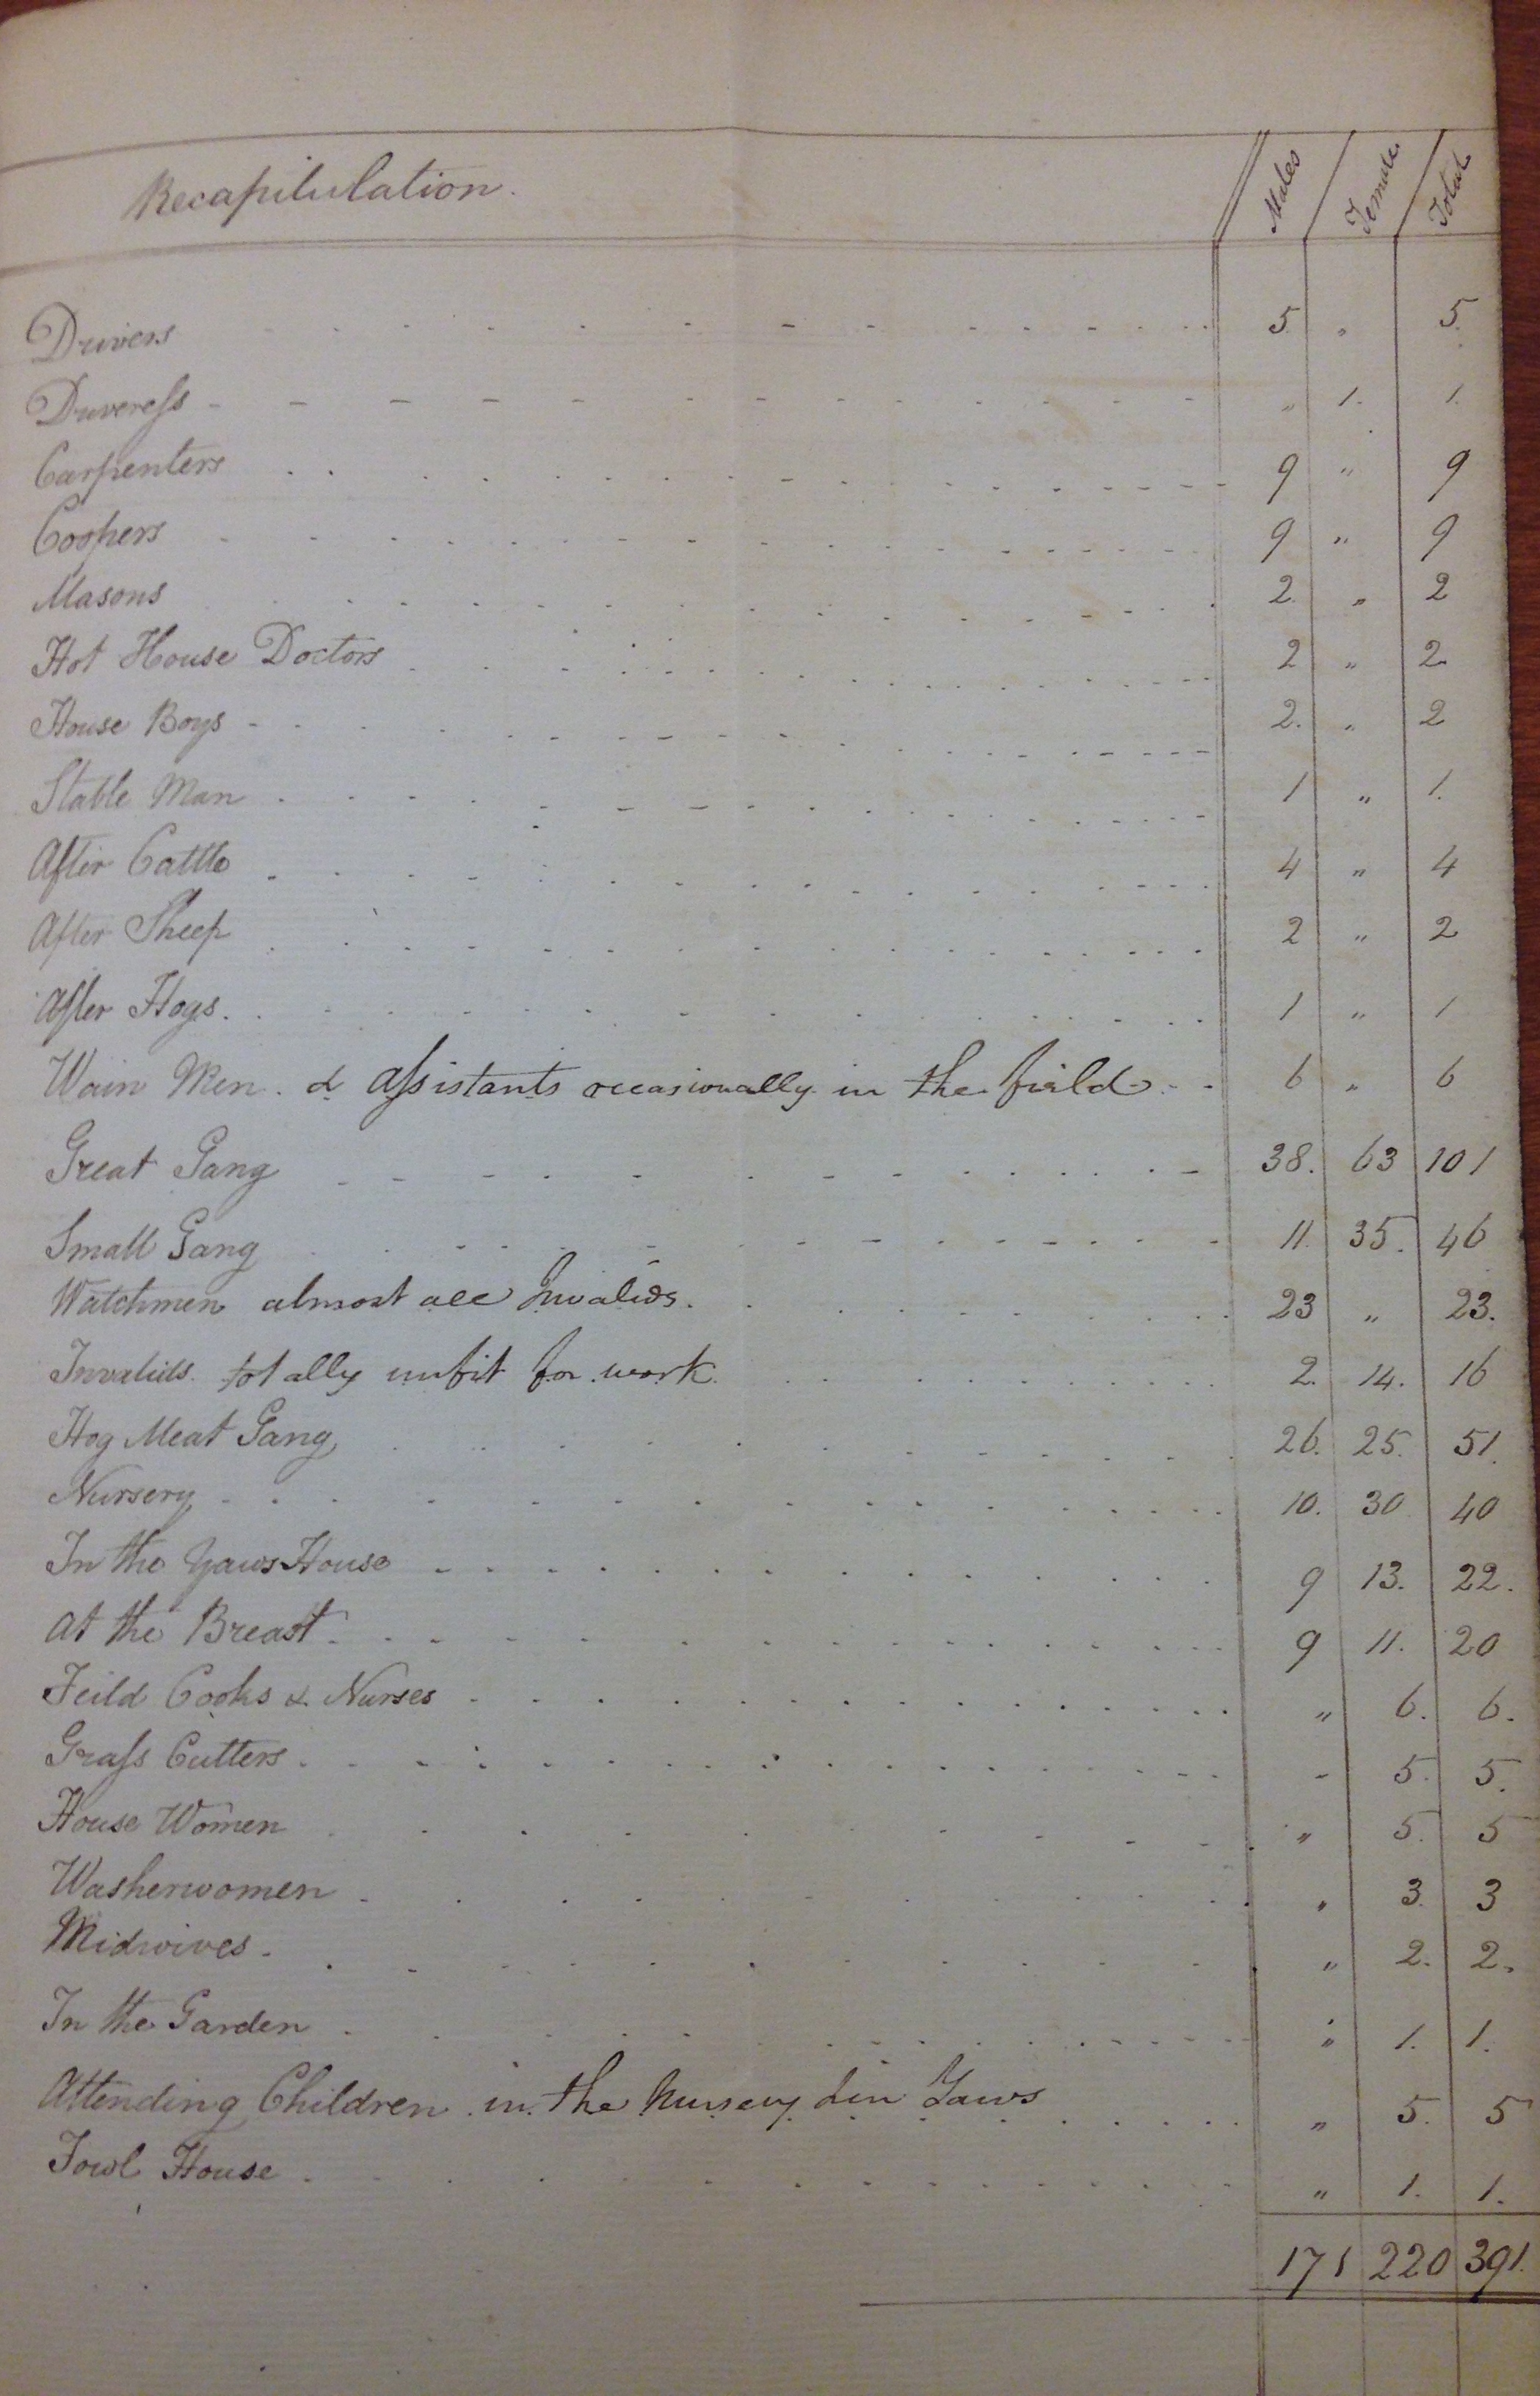 Recapitulation. Males Females Total
Drivers 5 " 5.
Driveress " 1. 1.
Carpenters 9 " 9
Coopers 9 " 9
Masons 2 " 2
Hot House Doctors 2 " 2
House Boys 2. " 2
Stable Man 1 " 1.
After Cattle 4 " 4
After Sheep 2 " 2
After Hogs. 1 " 1
Wain Men & Assistants occasionally in the field 6 " 6
Great Gang 38. 63 101
Small Gang 11. 35. 46
Watchmen almost all Invalids. 23 " 23.
Invalids totally unfit for work 2. 14. 16
Hog Meat Gang 26. 25. 51.
Nursery 10. 30 40
In the Yaws House 9 13. 22.
At the Breast 9 11. 20
Feild Cooks & Nurses " 6. 6.
Grass Cutters " 5. 5.
House Women " 5. 5
Washerwomen " 3. 3
Midwives " 2. 2.
In the Garden " 1. 1.
Attending Children in the Nursery & in Yaws " 5. 5
Fowl House " 1. 1.
171 220 391.